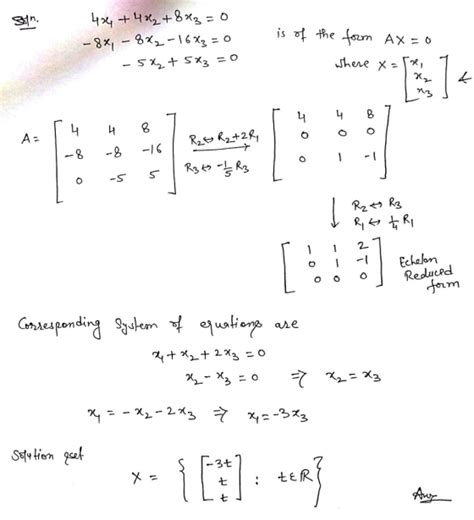 Soln. 4x₁ + 4x₂ + 8x₃ = 0
-8x₁ - 8x₂ - 16x₃ = 0
- 5x₂ + 5x₃ = 0
is of the form AX = 0
where X = [x₁
x₂
x₃] ←
A = [4 4 8
-8 -8 -16
0 -5 5]
R₂ ↔ R₂+2R₁
R₃ ↔ -1/5 R₃
[4 4 8
0 0 0
0 1 -1]
↓ R₂ ↔ R₃
R₁ ↔ 1/4 R₁
[1 1 2
0 1 -1
0 0 0]
Echelon
Reduced
form
Corresponding System of equations are
x₁ + x₂ + 2x₃ = 0
x₂ - x₃ = 0 ⇒ x₂ = x₃
x₁ = -x₂ - 2x₃ ⇒ x₁ = -3x₃
Solution set
X = { [-3t
t
t] : t ∈ ℝ }
Ans